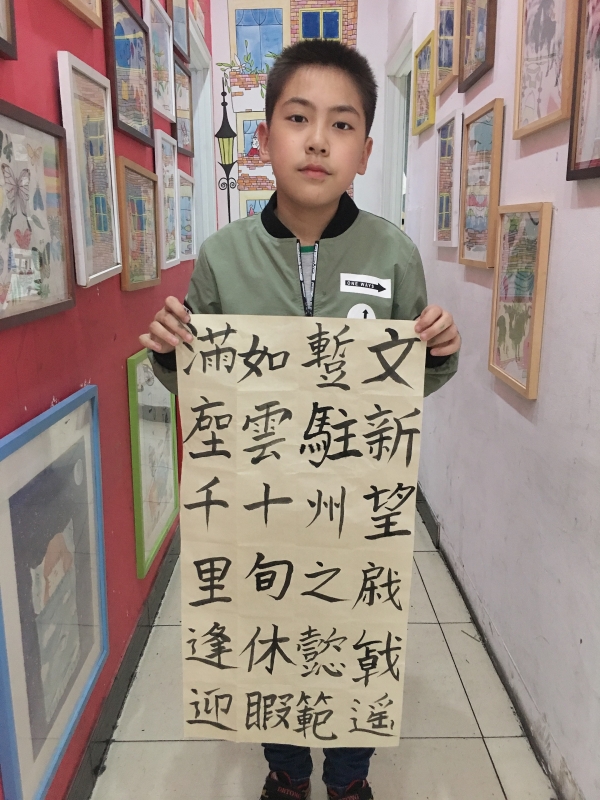 文新望戟遥
蹔駐州之懿範
如雲十旬休暇
滿座千里逢迎
ONE WAYS